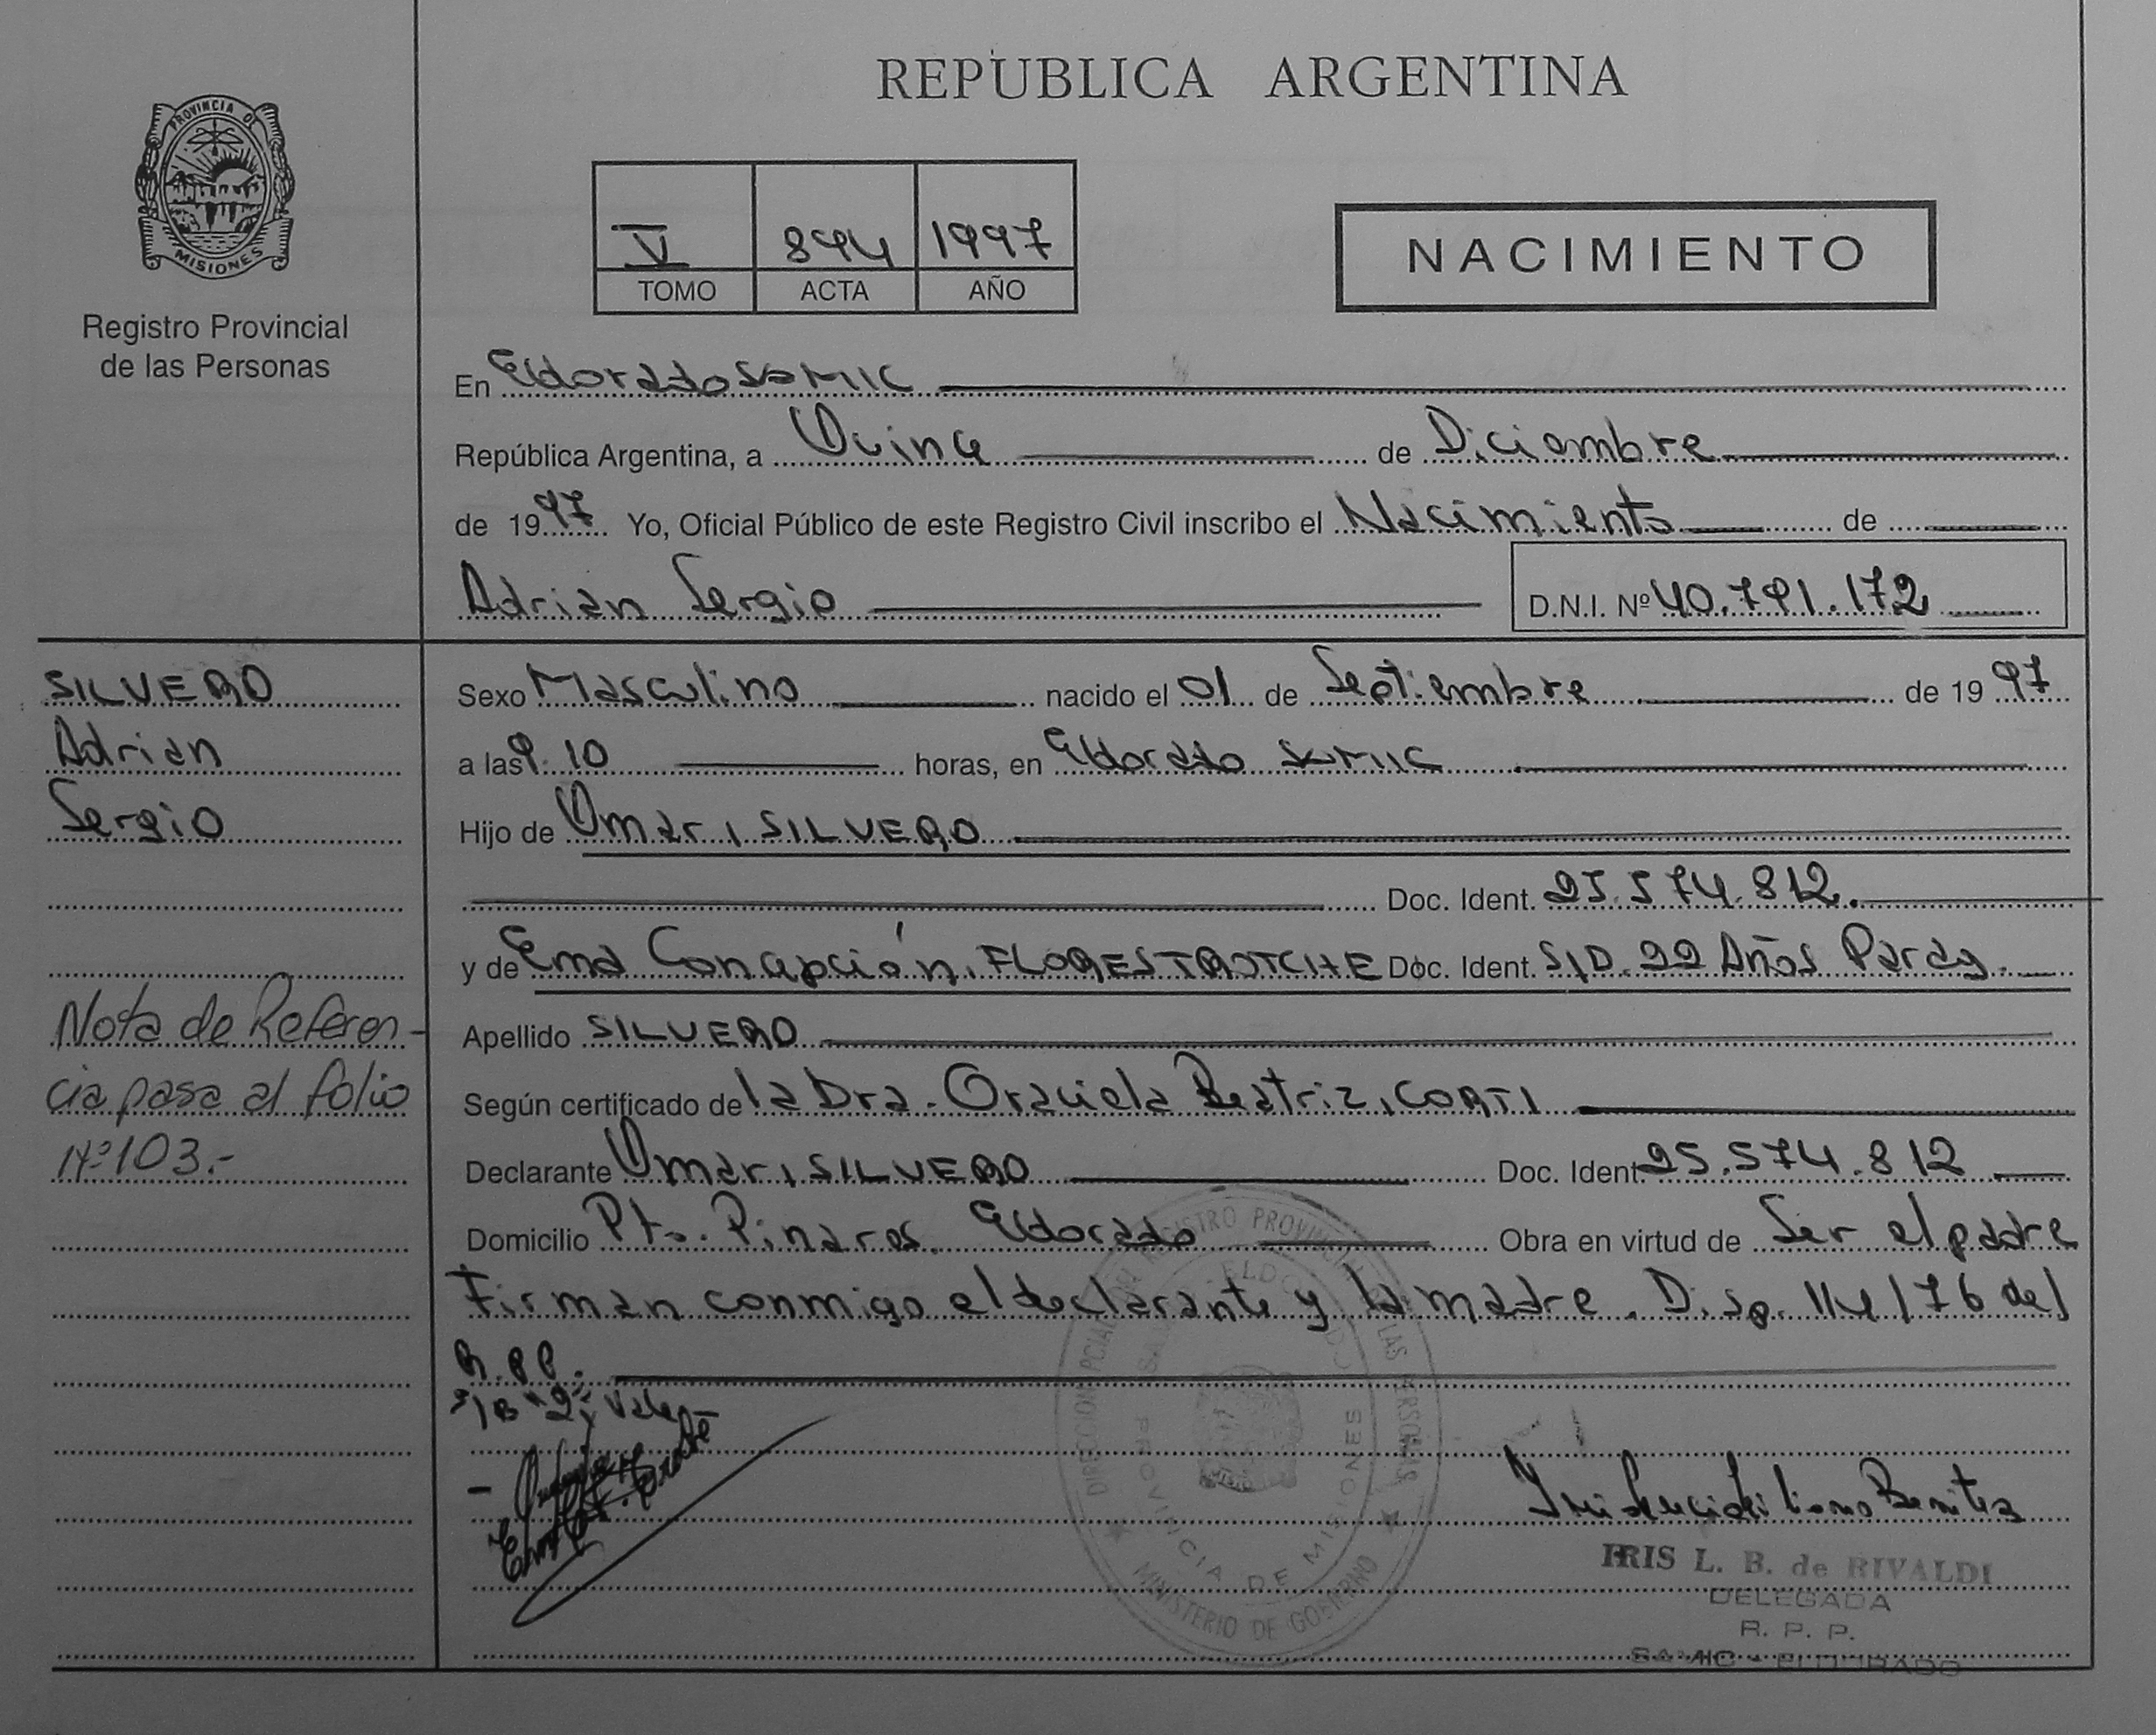 REPUBLICA ARGENTINA
PROVINCIA DE
MISIONES
Registro Provincial
de las Personas
V 894 1997
TOMO ACTA AÑO
NACIMIENTO
En Eldorado SAMIC
República Argentina, a Quince de Diciembre
de 1997 Yo, Oficial Público de este Registro Civil inscribo el Nacimiento de
Adrian Sergio D.N.I. Nº 40.791.172
SILVERO
Adrian
Sergio
Nota de Referen-
cia pasa al folio
Nº 103.-
Sexo Masculino nacido el 01 de Septiembre de 1997
a las 9:10 horas, en Eldorado SAMIC
Hijo de Omar, SILVERO
Doc. Ident. 25.574.812.
y de Ema Concepción, FLORES TROTCHE Doc. Ident. S/D. 22 Años Parag.
Apellido SILVERO
Según certificado de la Dra. Graciela Beatriz, CORTI
Declarante Omar, SILVERO Doc. Ident. 25.574.812
Domicilio Pto. Pinares. Eldorado Obra en virtud de Ser el padre
Firman conmigo el declarante y la madre. Disp. 114/76 del
R.P.P.
S/B "2" Vale-
DIRECCION PCIAL DEL REGISTRO PROVINCIAL DE LAS PERSONAS
MINISTERIO DE GOBIERNO
PROVINCIA DE MISIONES
IRIS L. B. de RIVALDI
DELEGADA
R. P. P.
SAMIC - ELDORADO